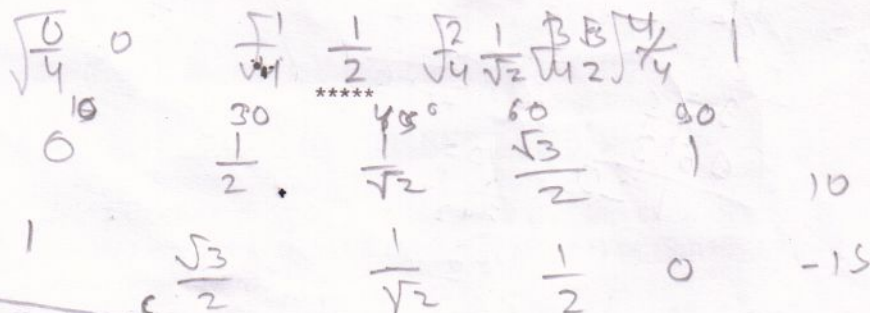 √0/4 0 √1/√4 1/2 √2/4 1/√2 √3/4 √3/2 √4/4 1
*****
30 45° 60 90
0 1/2 1/√2 √3/2 1 10
1 √3/2 1/√2 1/2 0 -15